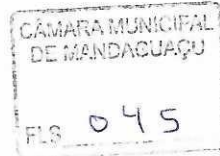 CÂMARA MUNICIPAL
DE MANDAGUAÇU
FLS 045